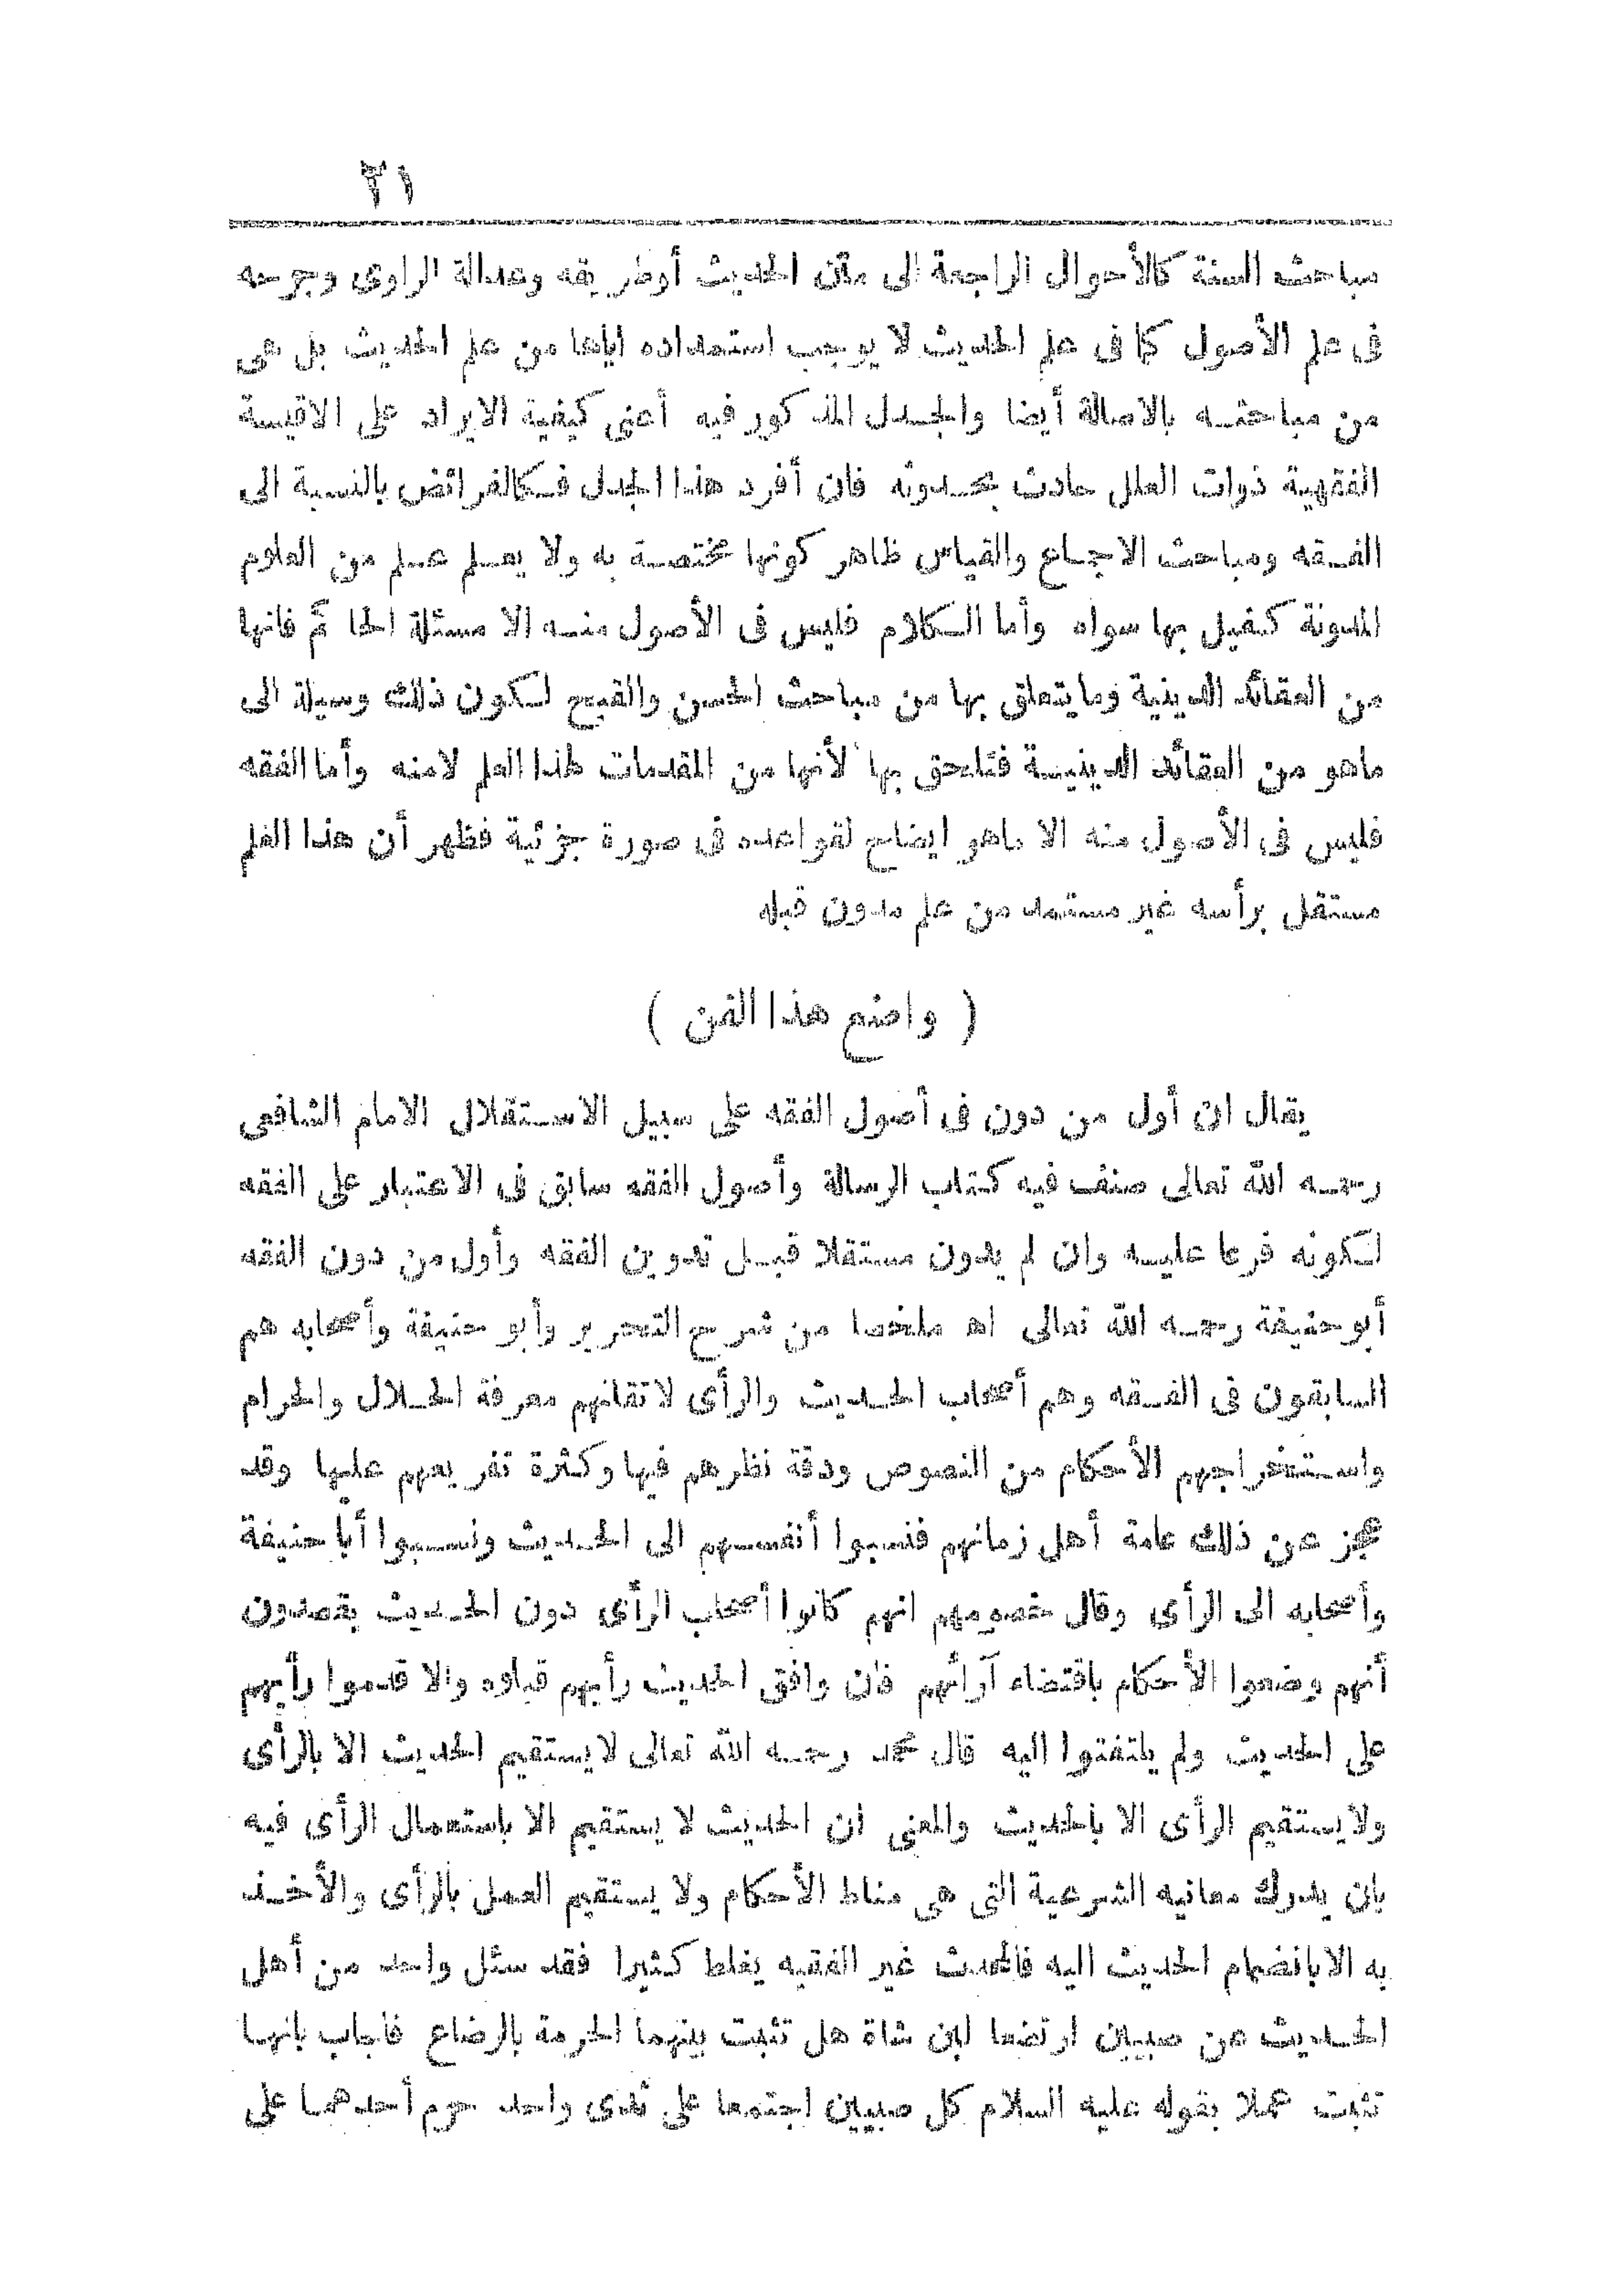 ٢١
مباحث السنة كالأحوال الراجعة الى متن الحديث أو طريقه وعدالة الراوى وجرحه
فى علم الأصول كما فى علم الحديث لا يوجب استمداده اياها من علم الحديث بل هى
من مباحثه بالاصالة أيضا والجدل المذكور فيه أعنى كيفية الايراد على الاقيسة
الفقهية ذوات العلل حادث بحدوثه فان أفرد هذا الجدل فكالفرائض بالنسبة الى
الفقه ومباحث الاجماع والقياس ظاهر كونها مختصة به ولا يعلم علم من العلوم
المدونة كفيل بها سواه وأما الكلام فليس فى الأصول منه الا مسئلة الحاكم فانها
من العقائد الدينية وما يتعلق بها من مباحث الحسن والقبح لكون ذلك وسيلة الى
ماهو من العقائد الدينية فتلحق بها لأنها من المقدمات لهذا العلم لامنه وأما الفقه
فليس فى الأصول منه الا ماهو ايضاح لقواعده فى صورة جزئية فظهر أن هذا العلم
مستقل برأسه غير مستمد من علم مدون قبله
( واضع هذا الفن )
يقال ان أول من دون فى أصول الفقه على سبيل الاستقلال الامام الشافعى
رحمه الله تعالى صنف فيه كتاب الرسالة وأصول الفقه سابق فى الاعتبار على الفقه
لكونه فرعا عليه وان لم يدون مستقلا قبل تدوين الفقه وأول من دون الفقه
أبو حنيفة رحمه الله تعالى اه ملخصا من شرح التحرير وأبو حنيفة وأصحابه هم
السابقون فى الفقه وهم أصحاب الحديث والرأى لاتقانهم معرفة الحلال والحرام
واستخراجهم الأحكام من النصوص ودقة نظرهم فيها وكثرة تفريعهم عليها وقد
عجز عن ذلك عامة أهل زمانهم فنسبوا أنفسهم الى الحديث ونسبوا أبا حنيفة
وأصحابه الى الرأى وقال خصومهم انهم كانوا أصحاب الرأى دون الحديث يقصدون
أنهم وضعوا الأحكام باقتضاء آرائهم فان وافق الحديث رأيهم قبلوه والا قدموا رأيهم
على الحديث ولم يلتفتوا اليه قال محمد رحمه الله تعالى لا يستقيم الحديث الا بالرأى
ولا يستقيم الرأى الا بالحديث والمعنى ان الحديث لا يستقيم الا باستعمال الرأى فيه
بان يدرك معانيه الشرعية التى هى مناط الأحكام ولا يستقيم العمل بالرأى والأخذ
به الا بانضمام الحديث اليه فالمحدث غير الفقيه يغلط كثيرا فقد سئل واحد من أهل
الحديث عن صبيين ارتضعا لبن شاة هل تثبت بينهما الحرمة بالرضاع فأجاب بانها
تثبت عملا بقوله عليه السلام كل صبيين اجتمعا على ثدى واحد حرم أحدهما على